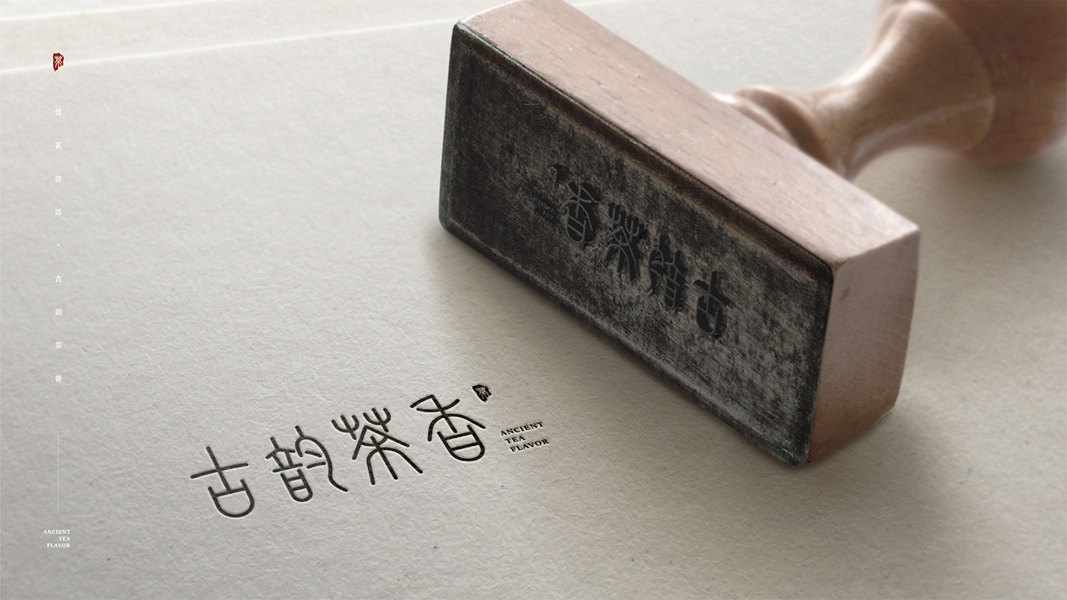 佳茗悠远·古韵茶香
ANCIENT
TEA
FLAVOR
古韵茶香
古韵茶香
茶
ANCIENT
TEA
FLAVOR